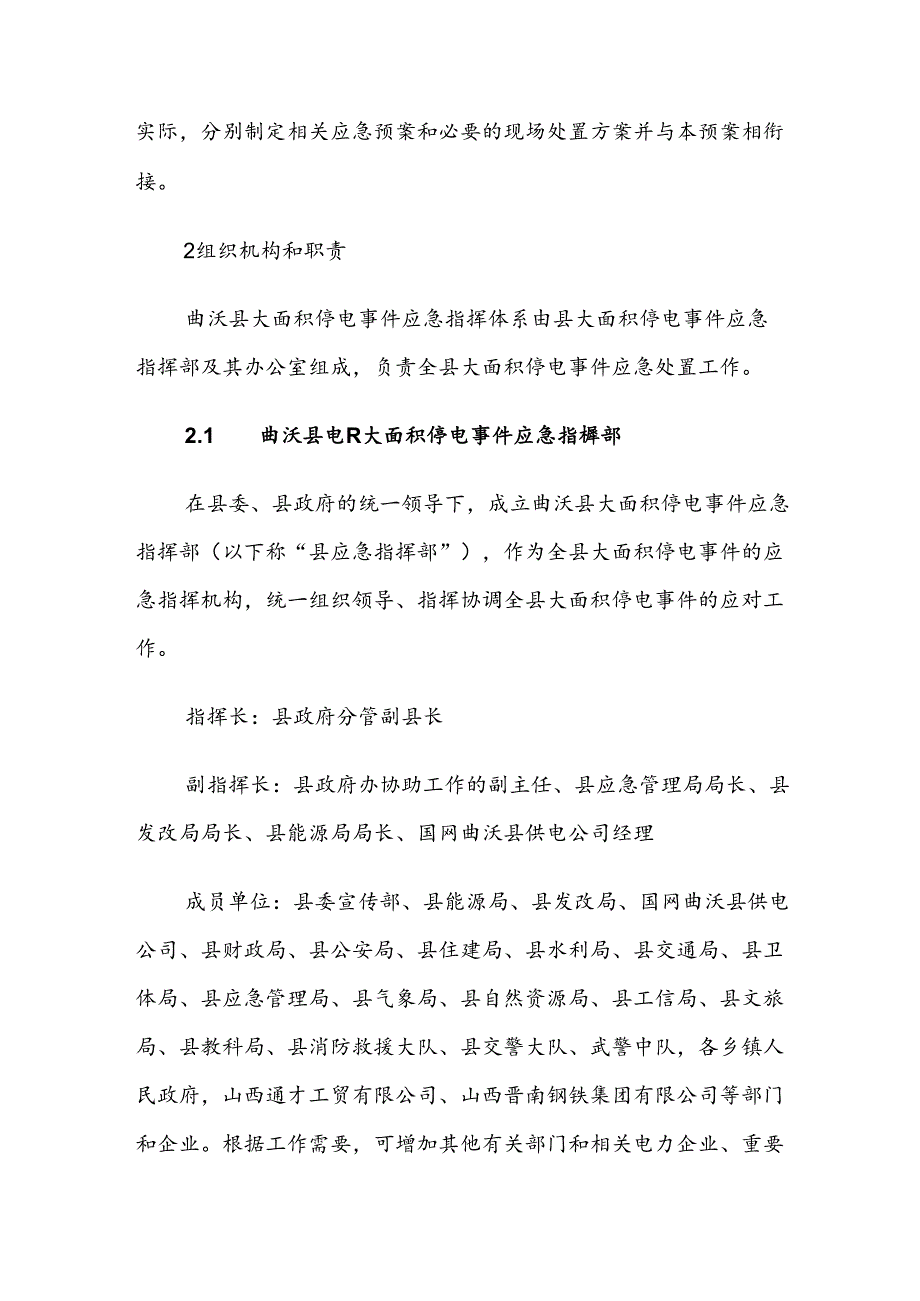 实际，分别制定相关应急预案和必要的现场处置方案并与本预案相衔
接。
2组织机构和职责
曲沃县大面积停电事件应急指挥体系由县大面积停电事件应急
指挥部及其办公室组成，负责全县大面积停电事件应急处置工作。
2.1 曲沃县电R大面积停电事件应急指樨部
在县委、县政府的统一领导下，成立曲沃县大面积停电事件应急
指挥部（以下称“县应急指挥部”），作为全县大面积停电事件的应
急指挥机构，统一组织领导、指挥协调全县大面积停电事件的应对工
作。
指挥长：县政府分管副县长
副指挥长：县政府办协助工作的副主任、县应急管理局局长、县
发改局局长、县能源局局长、国网曲沃县供电公司经理
成员单位：县委宣传部、县能源局、县发改局、国网曲沃县供电
公司、县财政局、县公安局、县住建局、县水利局、县交通局、县卫
体局、县应急管理局、县气象局、县自然资源局、县工信局、县文旅
局、县教科局、县消防救援大队、县交警大队、武警中队，各乡镇人
民政府，山西通才工贸有限公司、山西晋南钢铁集团有限公司等部门
和企业。根据工作需要，可增加其他有关部门和相关电力企业、重要